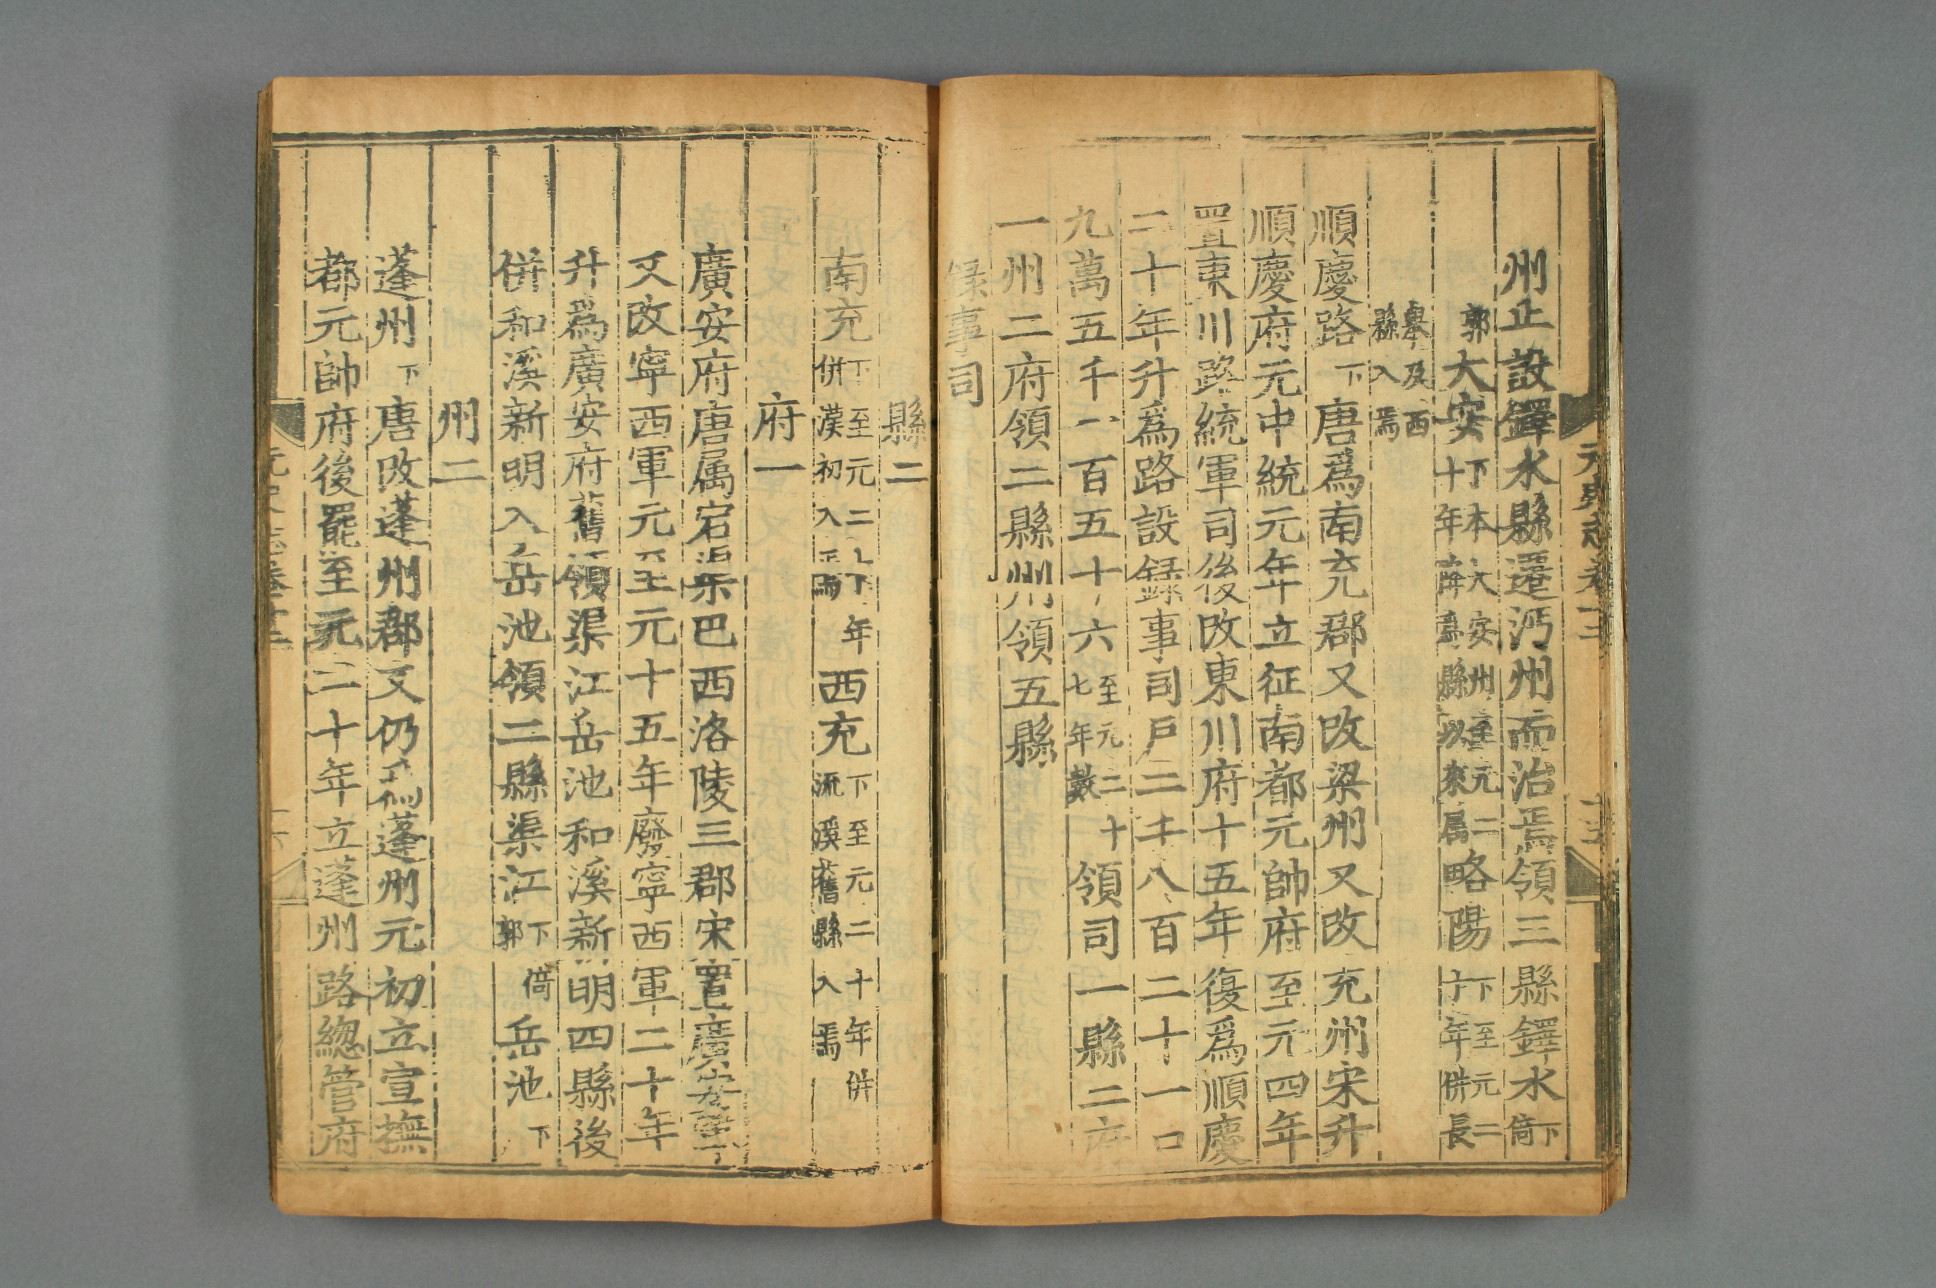 州止設鐸水縣遷沔州而治焉領三縣鐸水下倚
郭大安下本大安州至元二十年降爲縣以來属略陽下至元二十年併長
舉及西縣入焉
順慶路下唐爲南充郡又改梁州又改充州宋升
順慶府元中統元年立征南都元帥府至元四年
置東川路統軍司後改東川府十五年復爲順慶
二十年升爲路設録事司戶二千八百二十一口
九萬五千一百五十六至元二十七年數領司一縣二府
一州二府領二縣州領五縣
録事司
縣二
南充下至元二十年併漢初入焉西充下至元二十年併流溪舊縣入焉
府一
廣安府唐属宕渠巴西洛陵三郡宋置廣安軍
又改寧西軍元至元十五年廢寧西軍二十年
升爲廣安府舊領渠江岳池和溪新明四縣後
併和溪新明入岳池領二縣渠江下倚郭岳池下
州二
蓬州下唐改蓬州郡又仍爲蓬州元初立宣撫
都元帥府後罷至元二十年立蓬州路總管府